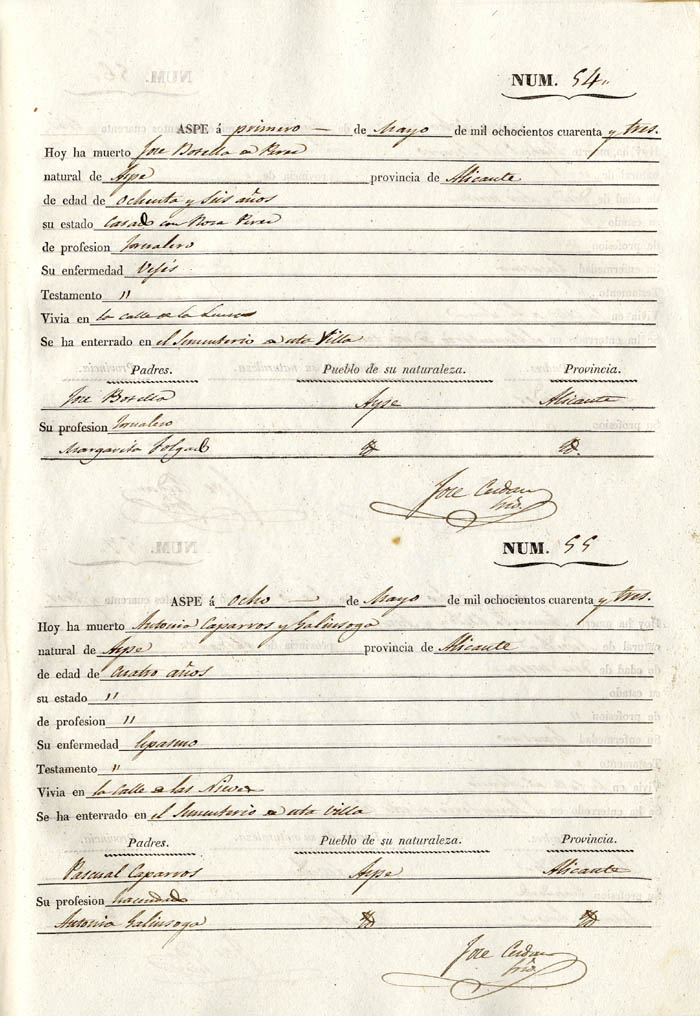 NUM. 54.
ASPE á primero de Mayo de mil ochocientos cuarenta y tres.
Hoy ha muerto Jose Botella
natural de Aspe provincia de Alicante
de edad de ochenta y seis años
su estado Casad con Rosa Perez
de profesion Jornalero
Su enfermedad Vejés
Testamento "
Vivia en la calle de la
Se ha enterrado en el Sementerio de esta Villa
Padres. Pueblo de su naturaleza. Provincia.
Jose Botella Aspe Alicante
Su profesion Jornalero
Margarita Id. Id.
Jose Cerdan
NUM. 55
ASPE á ocho de Mayo de mil ochocientos cuarenta y tres.
Hoy ha muerto Antonia Caparros y Galinsoga
natural de Aspe provincia de Alicante
de edad de cuatro años
su estado "
de profesion "
Su enfermedad Espasmo
Testamento "
Vivia en la calle de las Nieves
Se ha enterrado en el Sementerio de esta Villa
Padres. Pueblo de su naturaleza. Provincia.
Pascual Caparros Aspe Alicante
Su profesion hacendado
Antonia Galinsoga Id Id
Jose Cerdan